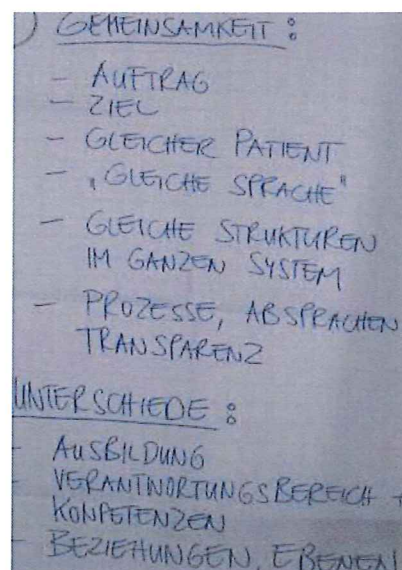 ) GEMEINSAMKEIT :
- AUFTRAG
- ZIEL
- GLEICHER PATIENT
- „GLEICHE SPRACHE"
- GLEICHE STRUKTUREN
IM GANZEN SYSTEM
- PROZESSE, ABSPRACHEN
TRANSPARENZ
UNTERSCHIEDE :
- AUSBILDUNG
- VERANTWORTUNGSBEREICH +
KOMPETENZEN
- BEZIEHUNGEN, EBENEN